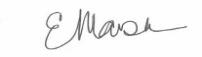 E Marsh